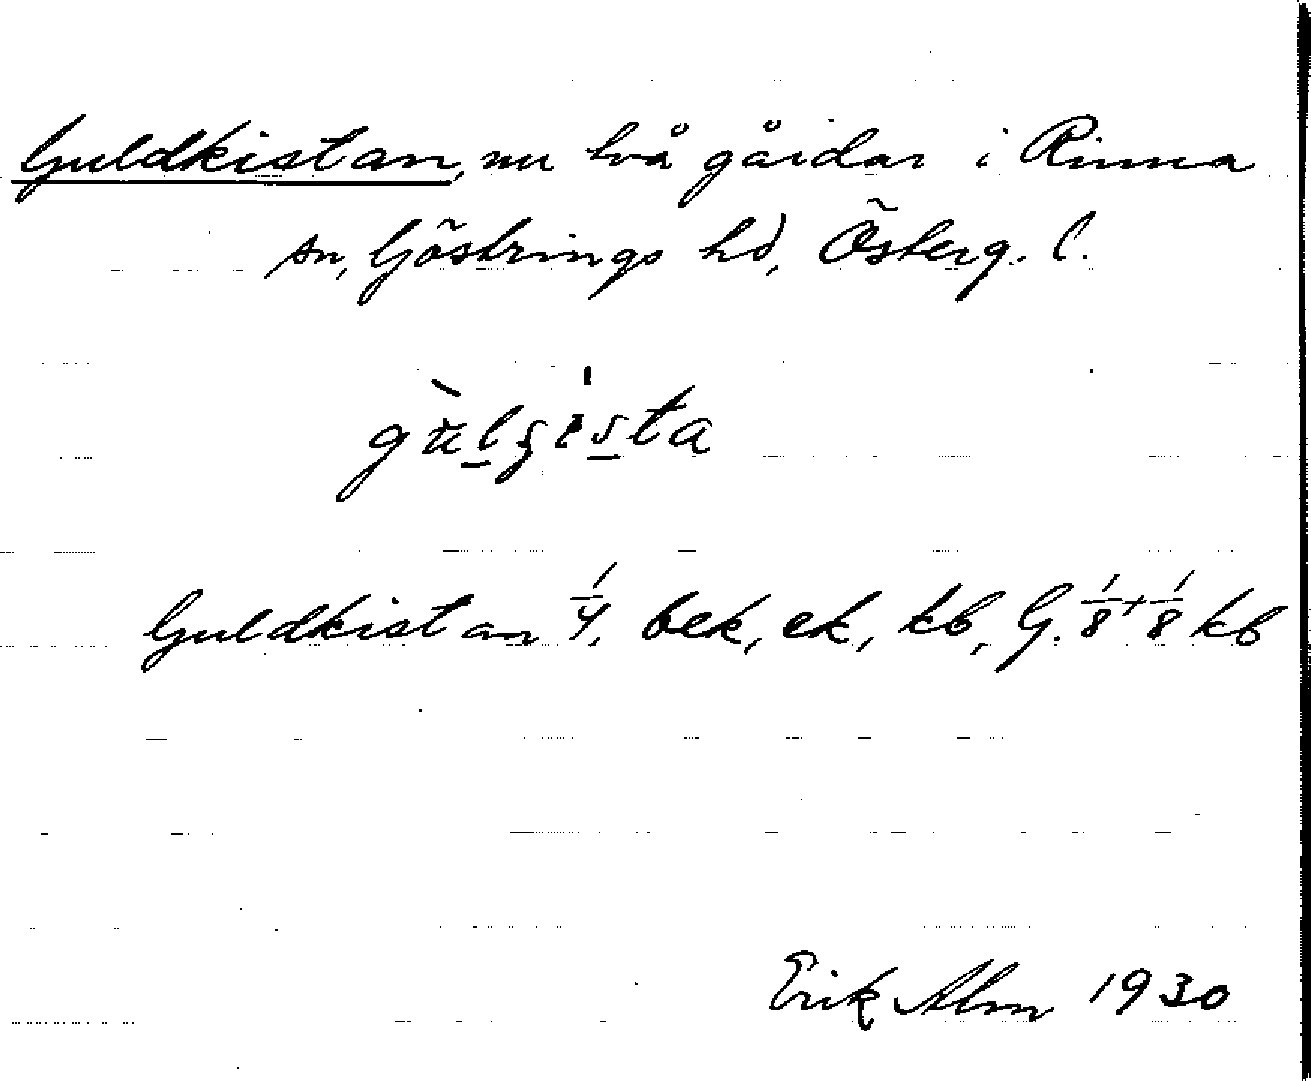 Guldkistan, nu två gårdar i Rinna
sn, Göstrings hd, Österg. l.
Guldkistan 1/4, bek, ek, kb, G. 1/8 + 1/8 kb
Erik Alm 1930